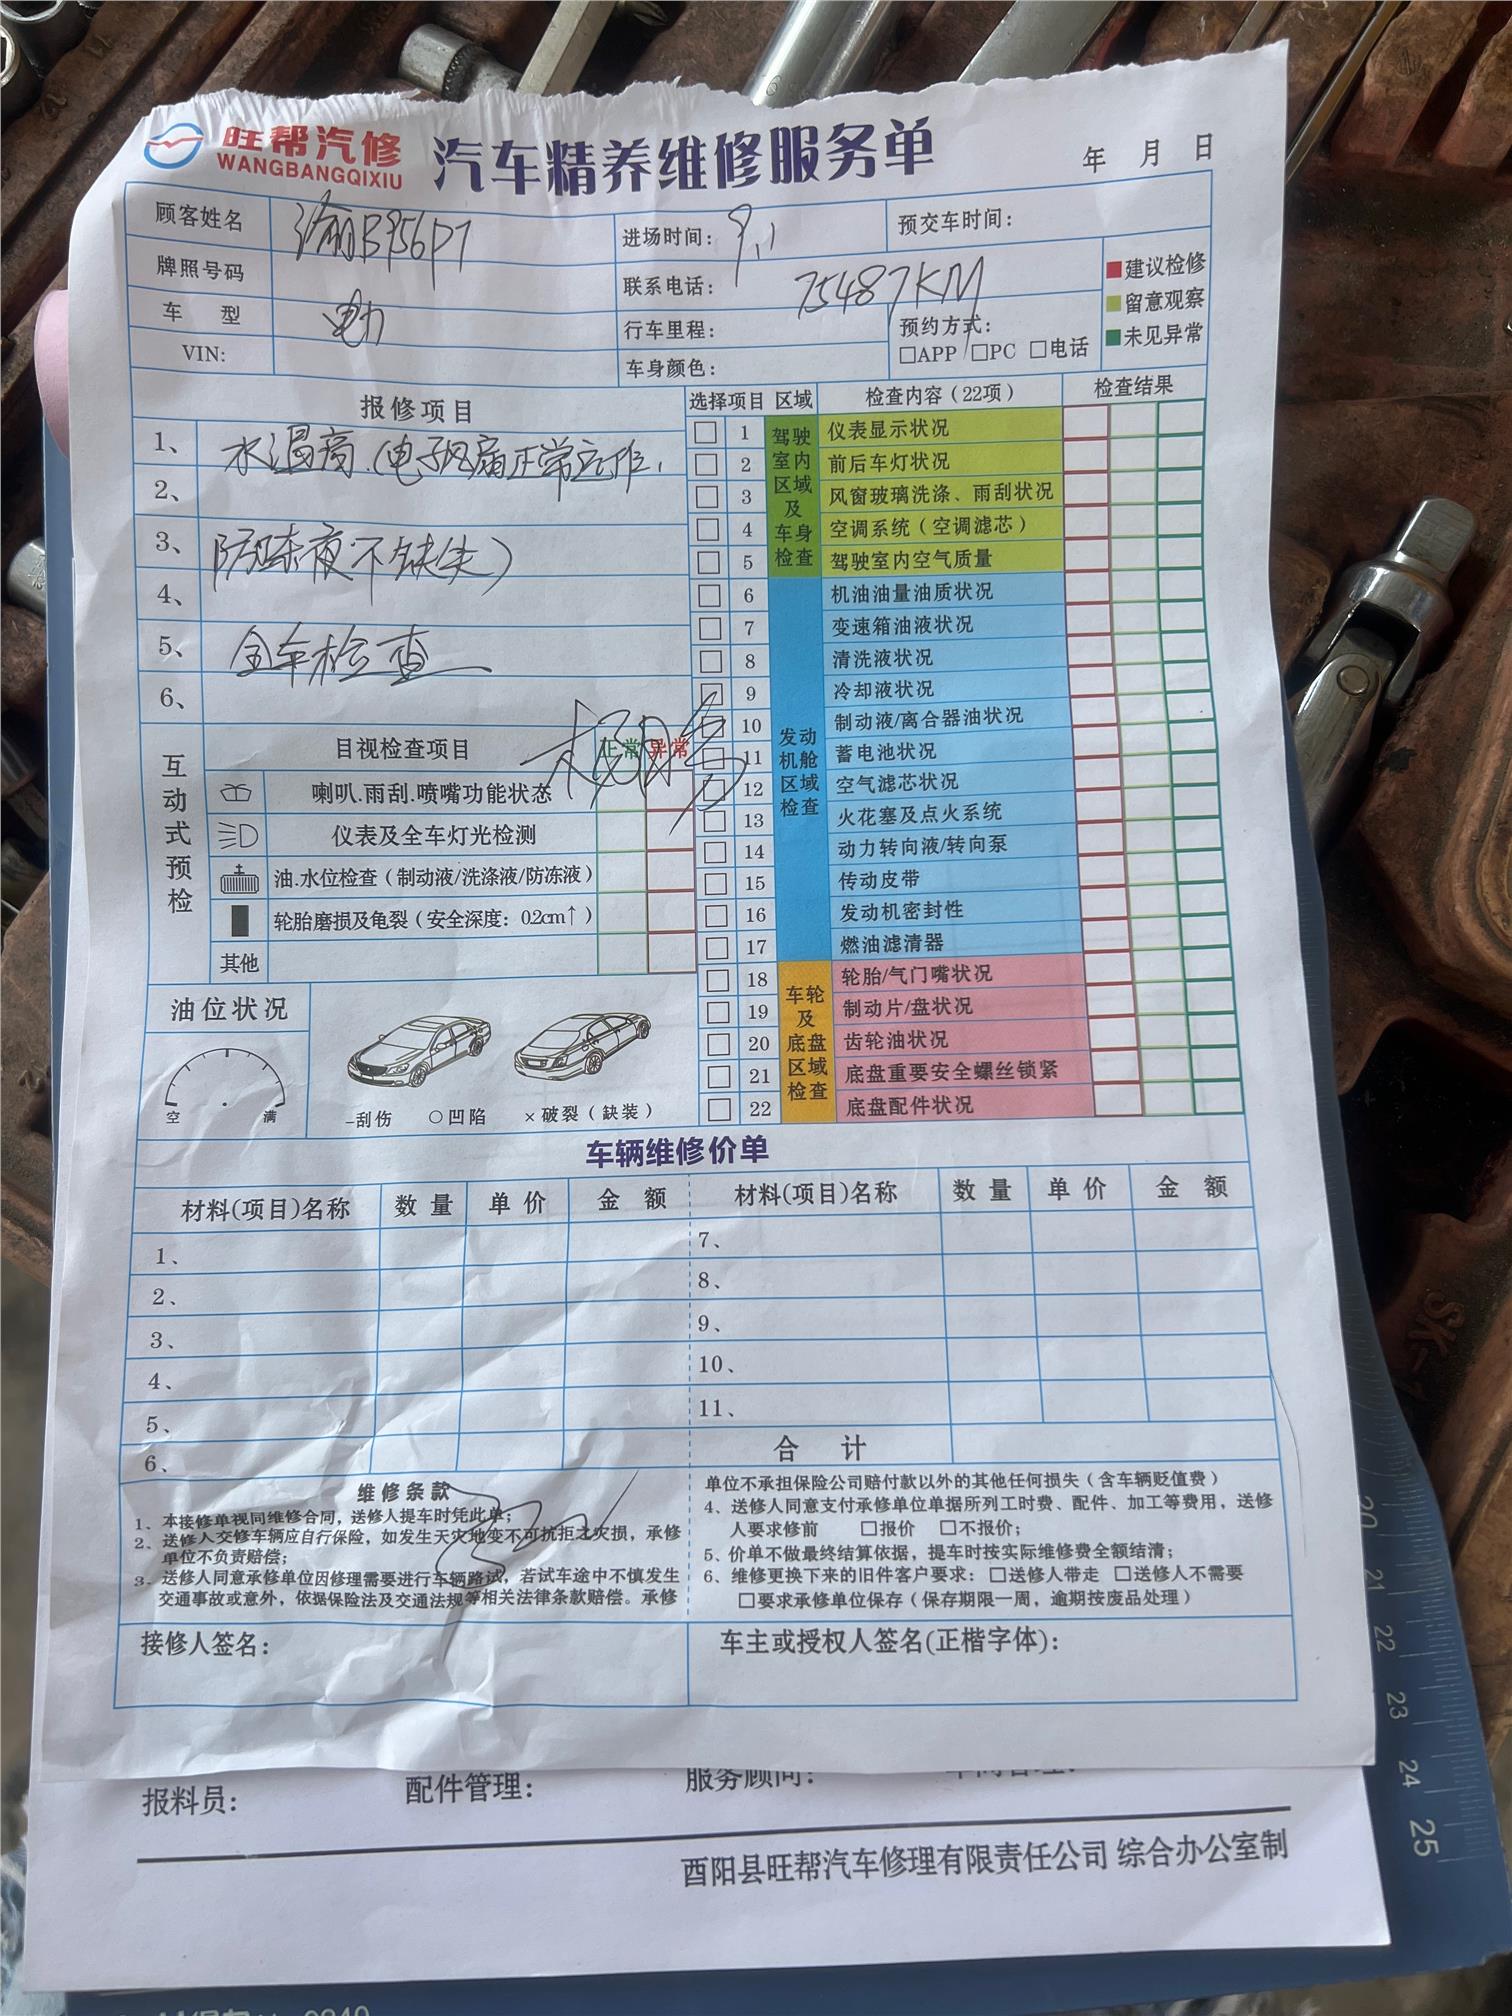 旺帮汽修
WANGBANGQIXIU
汽车精养维修服务单
年 月 日
顾客姓名 渝B356P7
进场时间: 9.1
预交车时间:
牌照号码
联系电话:
75487KM
车 型
行车里程:
预约方式:
□APP □PC □电话
VIN:
车身颜色:
建议检修
留意观察
未见异常
报修项目
1、水温高.(电子风扇正常运作,
2、
3、防冻液不缺失)
4、
5、全车检查
6、
选择项目 区域 检查内容(22项) 检查结果
驾驶室内区域及车身检查
1 仪表显示状况
2 前后车灯状况
3 风窗玻璃洗涤、雨刮状况
4 空调系统(空调滤芯)
5 驾驶室内空气质量
发动机舱区域检查
6 机油油量油质状况
7 变速箱油液状况
8 清洗液状况
9 冷却液状况
10 制动液/离合器油状况
11 蓄电池状况
12 空气滤芯状况
13 火花塞及点火系统
14 动力转向液/转向泵
15 传动皮带
16 发动机密封性
17 燃油滤清器
车轮及底盘区域检查
18 轮胎/气门嘴状况
19 制动片/盘状况
20 齿轮油状况
21 底盘重要安全螺丝锁紧
22 底盘配件状况
互动式预检
目视检查项目 正常 异常
喇叭.雨刮.喷嘴功能状态
仪表及全车灯光检测
油.水位检查(制动液/洗涤液/防冻液)
轮胎磨损及龟裂(安全深度: 0.2cm↑)
其他
油位状况
空 满
–刮伤 ○凹陷 ×破裂(缺装)
车辆维修价单
材料(项目)名称 数量 单价 金额 材料(项目)名称 数量 单价 金额
1、 7、
2、 8、
3、 9、
4、 10、
5、 11、
6、 合 计
维修条款
1、本接修单视同维修合同，送修人提车时凭此单；
2、送修人交修车辆应自行保险，如发生天灾地变不可抗拒之灾损，承修
单位不负责赔偿；
3、送修人同意承修单位因修理需要进行车辆路试，若试车途中不慎发生
交通事故或意外，依据保险法及交通法规等相关法律条款赔偿。承修
单位不承担保险公司赔付款以外的其他任何损失(含车辆贬值费)
4、送修人同意支付承修单位单据所列工时费、配件、加工等费用，送修
人要求修前 □报价 □不报价；
5、价单不做最终结算依据，提车时按实际维修费全额结清；
6、维修更换下来的旧件客户要求: □送修人带走 □送修人不需要
□要求承修单位保存(保存期限一周，逾期按废品处理)
接修人签名:
车主或授权人签名(正楷字体):
报料员:
配件管理:
服务顾问:
酉阳县旺帮汽车修理有限责任公司 综合办公室制
20
21
22
23
24
25